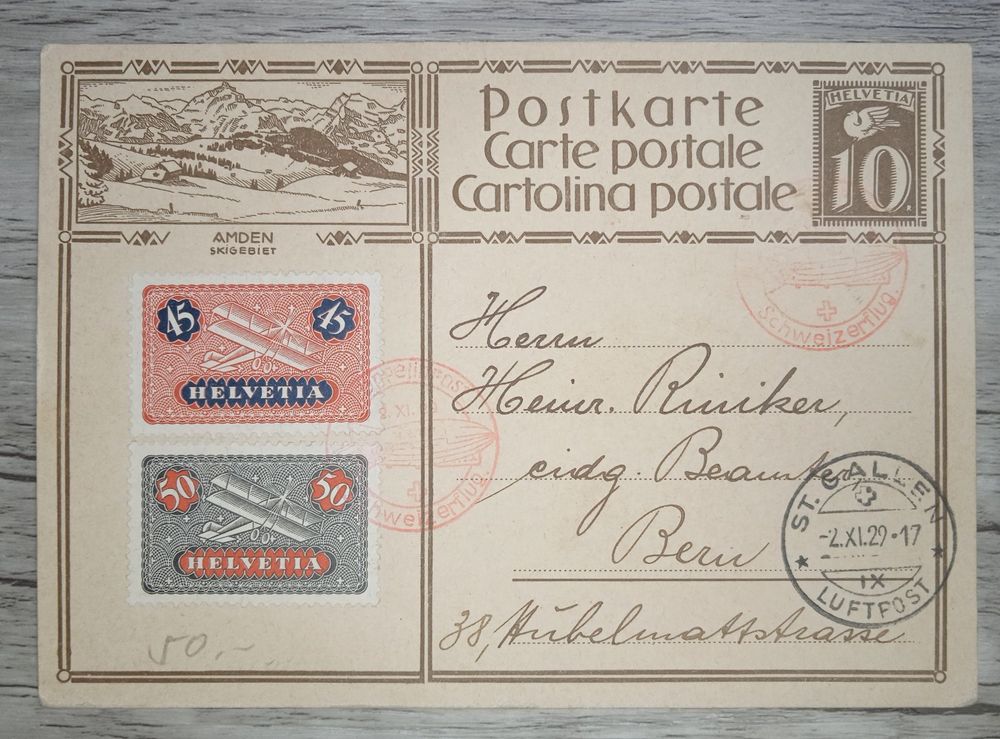 Postkarte
Carte postale
Cartolina postale
HELVETIA
10
AMDEN
SKIGEBIET
45 45
HELVETIA
50 50
HELVETIA
XI.29
Schweizerflug.
Schweizerflug.
Herrn
Heinr. Riniker,
eidg. Beamter
Bern
38, Hübelmattstrasse
ST. GALLEN
-2.XI.29-17
IX
LUFTPOST
50.-